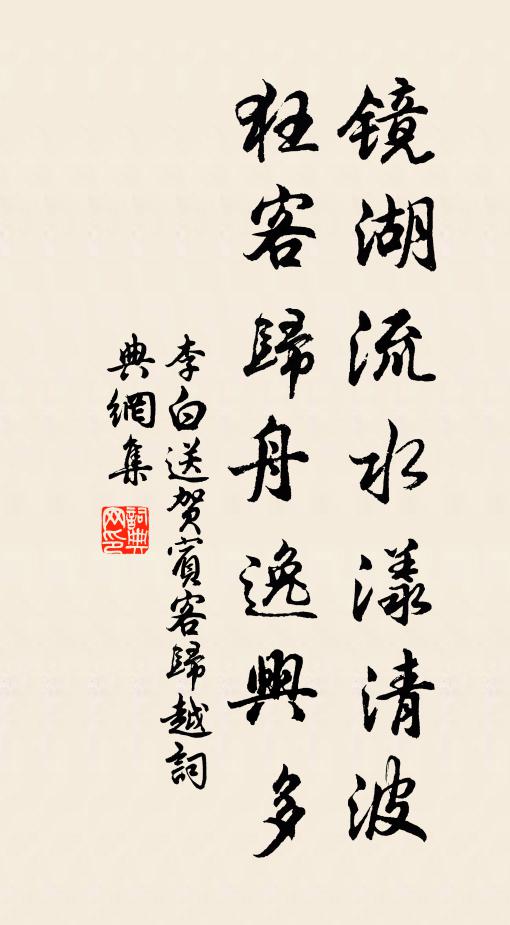 镜湖流水漾清波
狂客歸舟逸興多
李白送贺賓客歸越詞
典網集
詞典网印